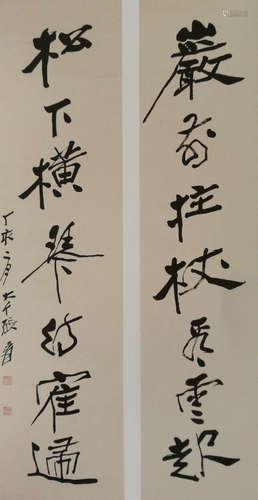 巖前拄杖看雲起
松下橫琴待寉還
丁未二月大千張爰